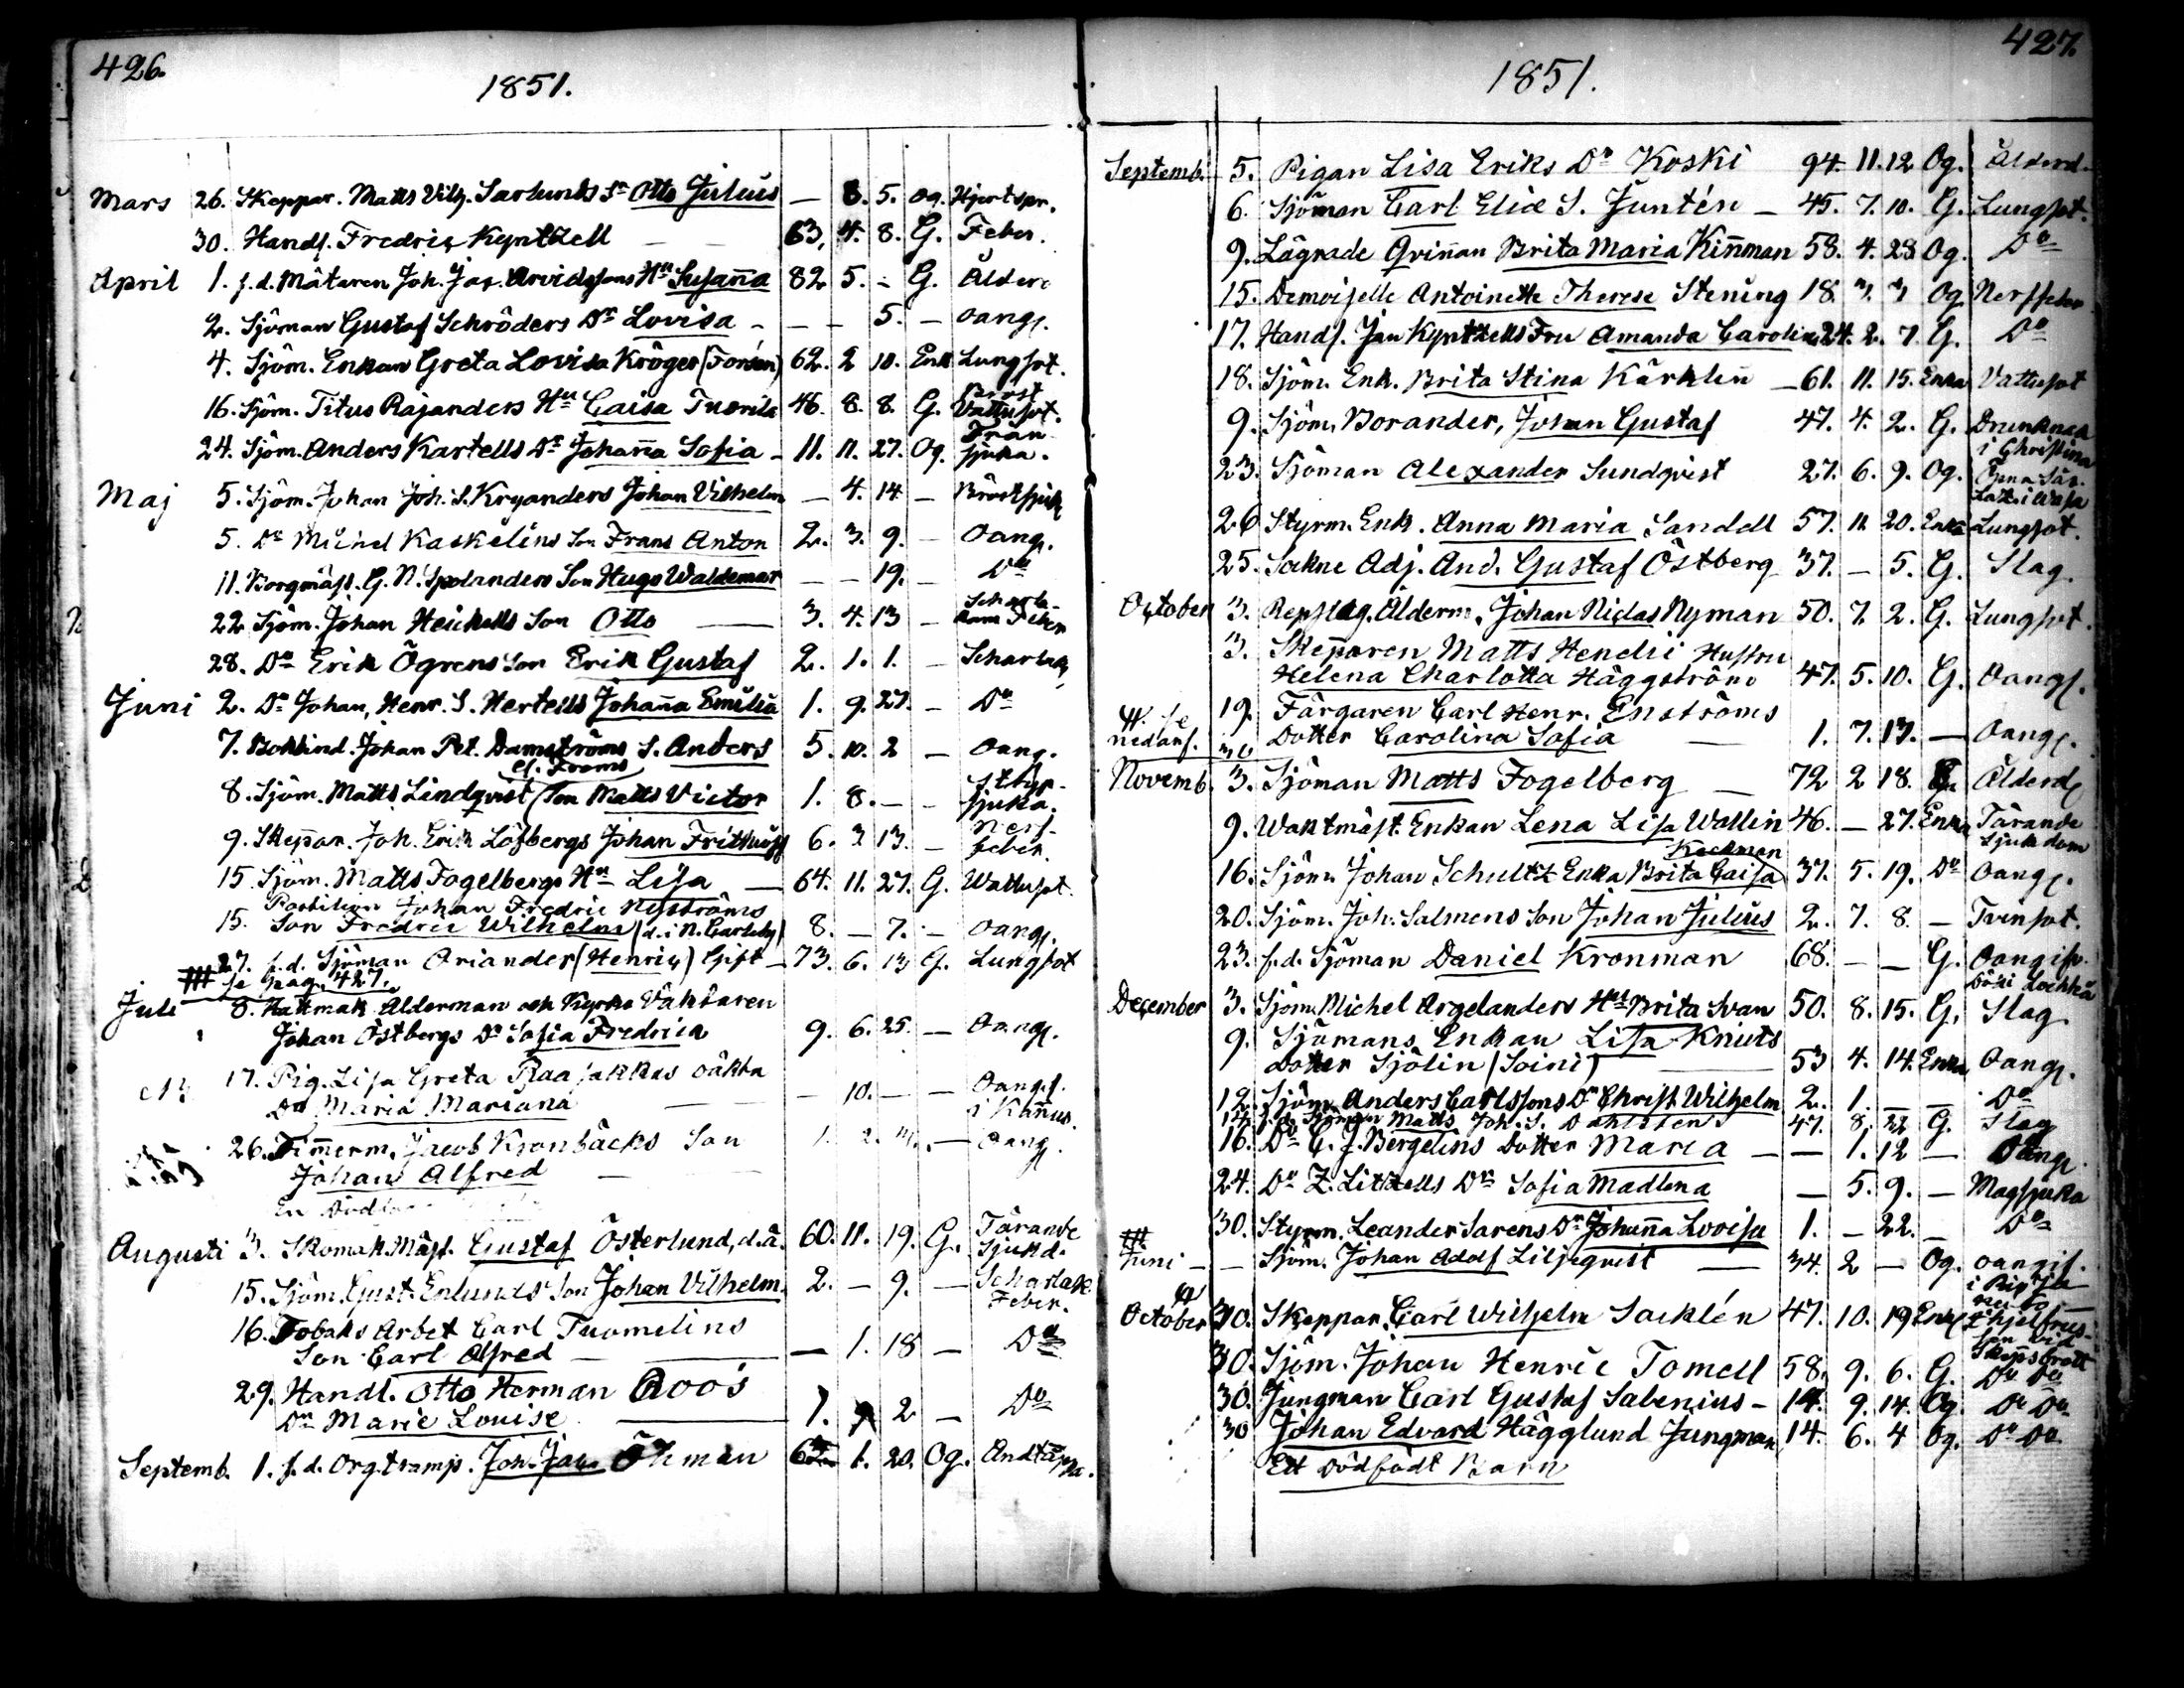 426.
1851.
Mars 26. Skeppar. Matts Vilh. Sarlunds Sn Otto Julius — 8. 5. Og. Hjertspr.
30. Handl. Fredric Kyntzell — — 63. 4. 8. G. Feber.
April 1. f.d. Mätaren Joh. Jac. Arvidssons Hu Susanna 82 5. - G. Ålderd
2. Sjöman Gustaf Schröders Dr Lovisa - - - 5. - Oang.
4. Sjöm. Enkan Greta Lovisa Kröger (Forsén) 62. 2 10. Enk Lungsot.
16. Sjöm. Titus Rajanders Hu Caisa Tuorila 46. 8. 8. G. Bröst Vattusot.
24. Sjöm. Anders Kartells Dr Johanna Sofia - 11. 11. 27. Og. Trånsjuka.
Maj 5. Sjöm. Johan Joh. S. Kryanders Johan Vilhelm — 4. 14 — Bröstsjuk
5. Do Michel Kaskelins Son Frans Anton 2. 3. 9. — Oang.
11. Borgmäst. G. N. Spolanders Son Hugo Waldemar — — 19. — Do
22 Sjöm. Johan Heickells Son Otto — 3. 4. 13 — Feber
28. Do Erik Ögrens Son Erik Gustaf 2. 1. 1. — Scharlak,
Juni 2. Do Johan, Henr. S. Hertells Johanna Emilia 1. 9. 27. — Do
7. Bokbind. Johan Pet. Damströms S. Anders 5. 10. 2 — Oang.
8. Sjöm. Matts Lindqvist (Son Matts Victor 1. 8. — — Strypsjuka.
9. Skeppar. Joh. Erik Löfbergs Johan Frithioff 6. 3 13. — Nerffeber.
15 Sjöm. Matts Fogelbergs Hu Lisa — 64. 11. 27. G. Wattusot.
Postiljon Johan Fredric Nyströms
15. Son Fredric Wilhelm (d. i N. Carleby) 8. — 7. — Oang.
27. f.d. Sjöman Oriander (Henric) Gift — 73. 6. 13 G. Lungsot
se pag. 427.
Juli 8. Hattmak. Ålderman och Kyrko Väktaren
Johan Östbergs Dr Sofia Fredrica 9. 6. 25. — Oang.
17. Pig. Lisa Greta Raajakkas oäkta
Dr Maria Mariana — — — 10. — — Oangf. i Kannus.
26. Timmerm. Jacob Kronbäcks Son 1. 2. — Oang.
Johan Alfred —
En
Augusti 3. Skomak. Mäst. Gustaf Österlund, d.ä. 60. 11. 19. G. Tärande Sjukd.
15. Sjöm. Gust. Enlunds Son Johan Vilhelm. 2. — 9. — Scharlak. Feber.
16. Tobaks Arbet Carl Tuomelins
Son Carl Alfred — — — 1. 18 — Do
29. Handl. Otto Herman Roos
Dr Marie Louise — 1. 9 2 — Do
Septemb. 1. f.d. Org.tramp. Joh. Jac. Öhman 1. 20. Og. Andtäppa.
427.
1851.
Septemb. 5. Pigan Lisa Eriks Dr Koski 94. 11. 12 Og. Ålderd.
6. Sjöman Carl Eliæ S. Juntén — 45. 7. 10. G. Lungsot.
9. Lägrade Qvinnan Brita Maria Kinnman 58. 4. 28 Og. Do
15. Demoiselle Antoinette Therese Stening 18. 3. 3 Og Nerffeber
17. Handl. Jan Kyntzells Fru Amanda Carolin. 24. 2. 7. G. Do
18. Sjöm. Enk. Brita Stina Kärklin — 61. 11. 15. Enka Vattusot
9. Sjöm. Borander, Johan Gustaf 47. 4. 2. G. Drunknad i Christina
23. Sjöman Alexander Sundqvist 27. 6. 9. Og. i Wasa
26 Styrm. Enk. Anna Maria Sandell 57. 11. 20. Enka Lungsot.
25. Sockne Adj. And. Gustaf Östberg 37. — 5. G. Slag.
October 3. Repslag. Ålderm. Johan Niclas Nyman 50. 7. 2. G. Lungsot.
3. Skepparen Matts Hendri Hustru
Helena Charlotta Häggström 47. 5. 10. G. Oang.
19. Färgaren Carl Henr. Enströms
Dotter Carolina Sofia — 1. 7. 13. — Oang.
se nedanf. 30
Novemb. 3. Sjöman Matts Fogelberg — 72 2 18. Ålderd
9. Waktmäst. Enkan Lena Lisa Wallin 46. — 27. Enka Tärande Sjukdom
Keckman
16. Sjöm. Johan Schultz Enka Brita Caisa 37. 5. 19. Do Oang.
20. Sjöm. Joh. Salmens Son Johan Julius 2. 7. 8. — Tvinsot.
23. f.d. Sjöman Daniel Kronman 68. — — G. Oangif. död i Lochteå
December 3. Sjöm. Michel Argelanders Hu Brita Svan 50. 8. 15. G. Slag
9. Sjömans Enkan Lisa Knuts
Dotter Sjölin (Soini) — 53 4. 14. Enka Oang.
12. Sjöm. Anders Carlssons Dr Christ. Wilhelm. 2. 1. — — Do
14. f.d. Sjöman Matts Joh. S. Dahlstén 47. 8. 22 G. Slag
16. Do C. J. Bergelins Dotter Maria — — 1. 12 — Oang.
24. Do Z. Litzells Dr Sofia Madlena — 5. 9. — Magsjuka
30. Styrm. Leander Sarens Dr Johanna Lovisa 1. — 22. — Do
Juni — — Sjöm. Johan Adolf Liljeqvist — 34. 2 — Og. oangif.
October 30. Skeppar. Carl Wilhelm Sacklén 47. 10. 19 Enkl Skeppsbrott
30. Sjöm. Johan Henric Tomell 58. 9. 6. G. Do Do
30. Jungman Carl Gustaf Sabenius — 14. 9. 14. Og. Do Do
30 Johan Edvard Hägglund Jungman 14. 6. 4 Og. Do Do
Ett dödfödt Barn